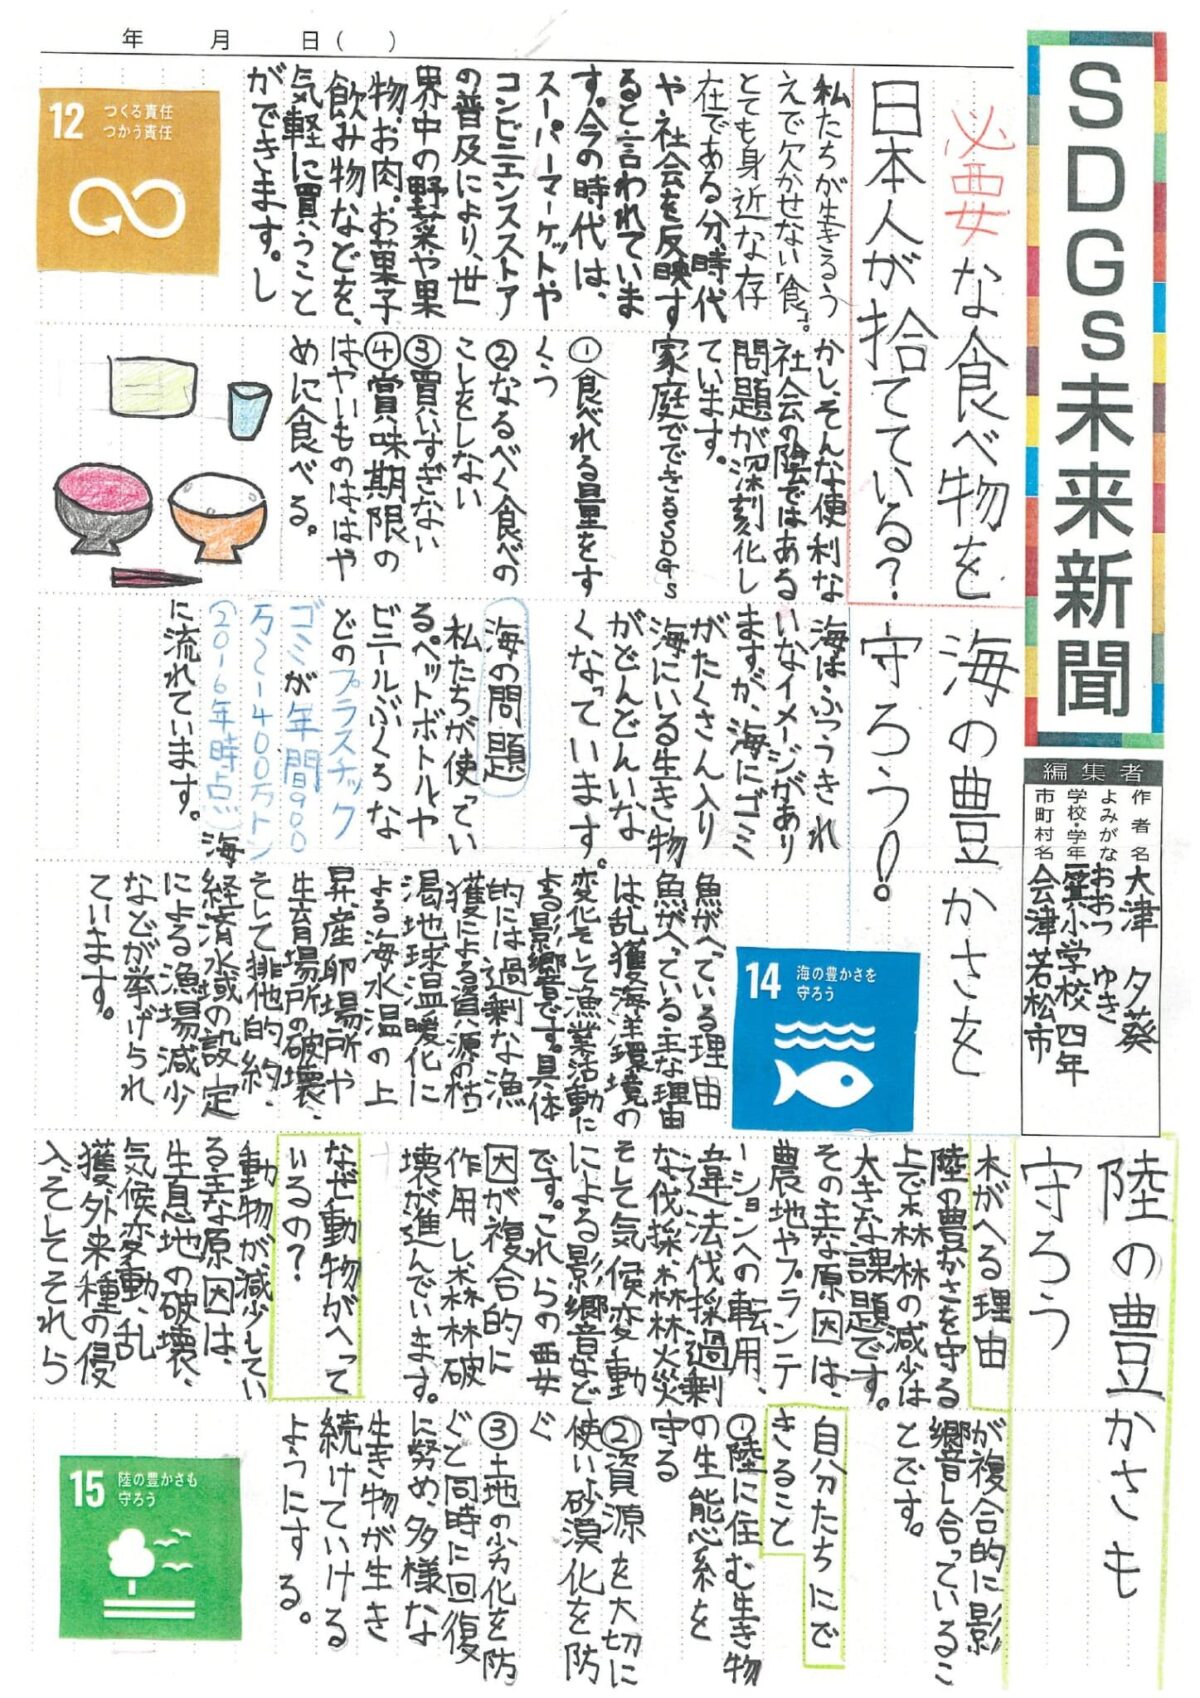 年　月　日（　）
SDGs未来新聞
編集者
作者名 大津 夕葵
よみがな おおつ ゆき
学校・学年 一箕小学校 四年
市町村名 会津若松市
必要な食べ物を
日本人が捨てている?
私たちが生きるう
えで欠かせない「食」。
とても身近な存
在である分、時代
や社会を反映す
ると言われていま
す。今の時代は、
スーパーマーケットや
コンビニエンスストア
の普及により、世
界中の野菜や果
物、お肉。お菓子
飲み物などを、
気軽に買うこと
ができます。し
かし、そんな便利な
社会の陰ではある
問題が深刻化し
ています。
家庭でできるSDGs
①食べれる量をす
くう
②なるべく食べの
こしをしない
③買いすぎない
④賞味期限の
はやいものははや
めに食べる。
12 つくる責任
つかう責任
海の豊かさを
守ろう!
海はふつうきれ
いなイメージがあり
ますが、海にゴミ
がたくさん入り
海にいる生き物
がどんどんいな
くなっています。
海の問題
私たちが使ってい
る。ペットボトルや
ビニールぶくろな
どのプラスチック
ゴミが年間900
万〜1400万トン
(2016年時点)海
に流れています。
魚がへっている理由
魚がへっている主な理由
は乱獲、海洋環境の
変化そして漁業活動に
よる影響です。具体
的には過剰な漁
獲による資源の枯
渇、地球温暖化に
よる海水温の上
昇、産卵場所や
生育場所の破壊、
そして排他的
経済水域の設定
による漁場減少
などが挙げられ
ています。
14 海の豊かさを
守ろう
陸の豊かさも
守ろう
木がへる理由
陸の豊かさを守る
上で森林の減少は
大きな課題です。
その主な原因は、
農地やプランテ
ーションへの転用、
違法伐採、過剰
な伐採、森林火災
そして気候変動
による影響など
です。これらの要
因が複合的に
作用し、森林破
壊が進んでいます。
なぜ動物がへって
いるの?
動物が減少してい
る主な原因は、
生息地の破壊、
気候変動、乱
獲、外来種の侵
入、そしてそれら
が複合的に影
響し合っているこ
とです。
自分たちにで
きること
①陸に住む生き物
の生態系を
守る
②資源を大切に
使い、砂漠化を防
ぐ
③土地の劣化を防
ぐと同時に回復
に努め、多様な
生き物が生き
続けていける
ようにする。
15 陸の豊かさも
守ろう